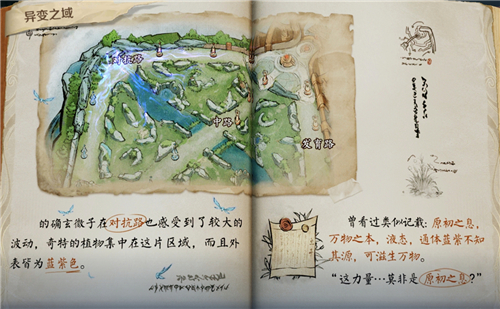 异变之域
对抗路
中路
发育路
的确玄微子在对抗路也感受到了较大的
波动，奇特的植物集中在这片区域，而且外
表皆为蓝紫色。
曾看过类似记载：原初之息，
万物之本，液态，通体蓝紫不知
其源，可滋生万物。
“这力量…莫非是原初之息？”